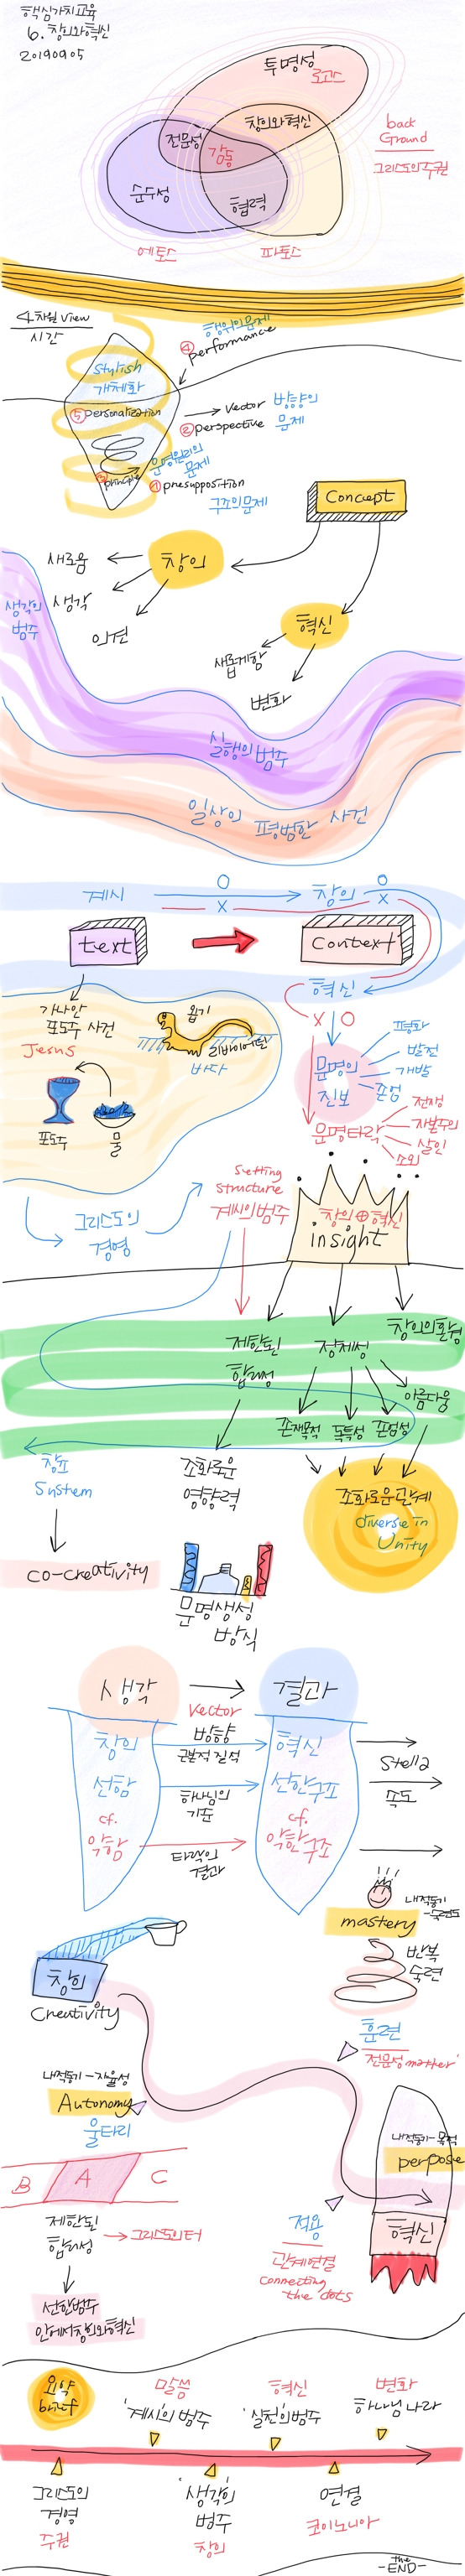 핵심가치교육
6. 창의와혁신
20190905
투명성
로고스
전문성
창의와혁신
감동
순수성
협력
에토스
파토스
back
Ground
그리스도의주권
4차원 view
시간
stylish
개체화
⑤ personalization
행위의문제
④ performance
→ vector 방향의
② perspective 문제
운영원리의
문제
③ principle
① presupposition
구조의문제
Concept
창의
새로움
생각
의견
혁신
새롭게함
변화
생각의
범주
실행의범주
일상의 평범한 사건
계시
O
X
창의
O
X
text
Context
혁신
X O
가나안
포도주 사건
Jesus
포도주
물
욥기
리바이어던
바다
문명의
진보
평화
발전
개발
존엄
문명타락
전쟁
자본주의
살인
소외
그리스도의
경영
Setting
structure
계시의범주
창의⊕혁신
insight
제한된
합리성
정체성
창의의환경
존재목적
독특성
존엄성
아름다움
창조
System
조화로운
영향력
조화로운관계
diverse in
Unity
co-creativity
문명생성
방식
생각
Vector
결과
창의
방향
근본적 질적
혁신
선함
하나님의
기준
선한구조
Stella
속도
cf.
악함
타락의
결과
cf.
악한구조
내적동기
-숙련도
mastery
반복
숙련
창의
Creativity
훈련
전문성 mather'
내적동기-자율성
Autonomy
울타리
내적동기-목적
perpose
B A C
제한된
합리성
→ 그리스도의터
적용
관계연결
connecting
the dots
혁신
선한범주
안에서창의와혁신
요약
brief
말씀
'계시'의 범주
혁신
'실천'의범주
변화
하나님 나라
그리스도의
경영
주권
'생각'의
범주
창의
연결
코이노니아
the
-END-